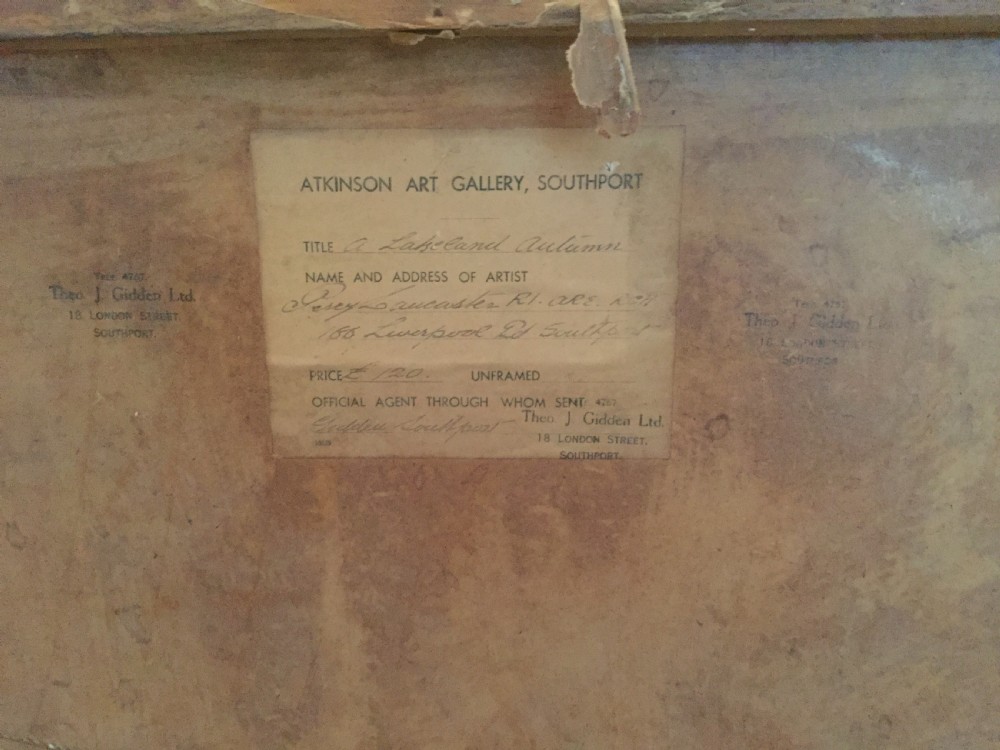 ATKINSON ART GALLERY, SOUTHPORT
TITLE A Lakeland Autumn
NAME AND ADDRESS OF ARTIST
Percy Lancaster R.I. A.R.E.
166 Liverpool Rd Southport
PRICE £ 120. UNFRAMED
OFFICIAL AGENT THROUGH WHOM SENT 4767
Gidden Southport Theo. J. Gidden Ltd.
18 LONDON STREET,
SOUTHPORT.
4767
Theo. J. Gidden Ltd.
18 LONDON STREET.
SOUTHPORT.
Theo. J. Gidden
18 LONDON STREET
SOUTHPORT